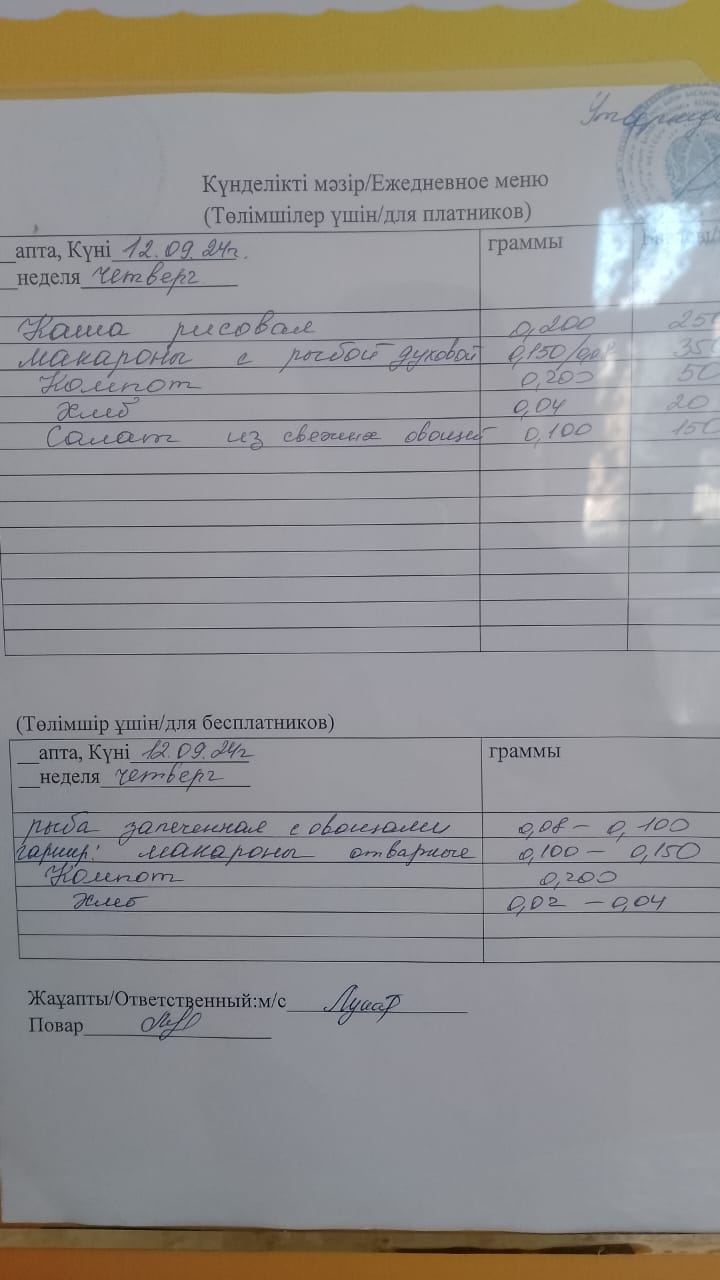 Күнделікті мәзір/Ежедневное меню
(Төлімшілер үшін/для платников)
__апта, Күні 12.09.24г. граммы
__неделя четверг
Каша рисовая 0,200 250
макароны с рыбой духовой 0,150/ 350
Компот 0,200 50
Хлеб 0,04 20
Салат из свежих овощей 0,100 150
(Төлімшір ұшін/для бесплатников)
__апта, Күні 12.09.24г граммы
__неделя четверг
рыба запеченная с овощами 0,08 - 0,100
гарнир: макароны отварные 0,100 - 0,150
Компот 0,200
Хлеб 0,02 - 0,04
Жауапты/Ответственный:м/с
Повар